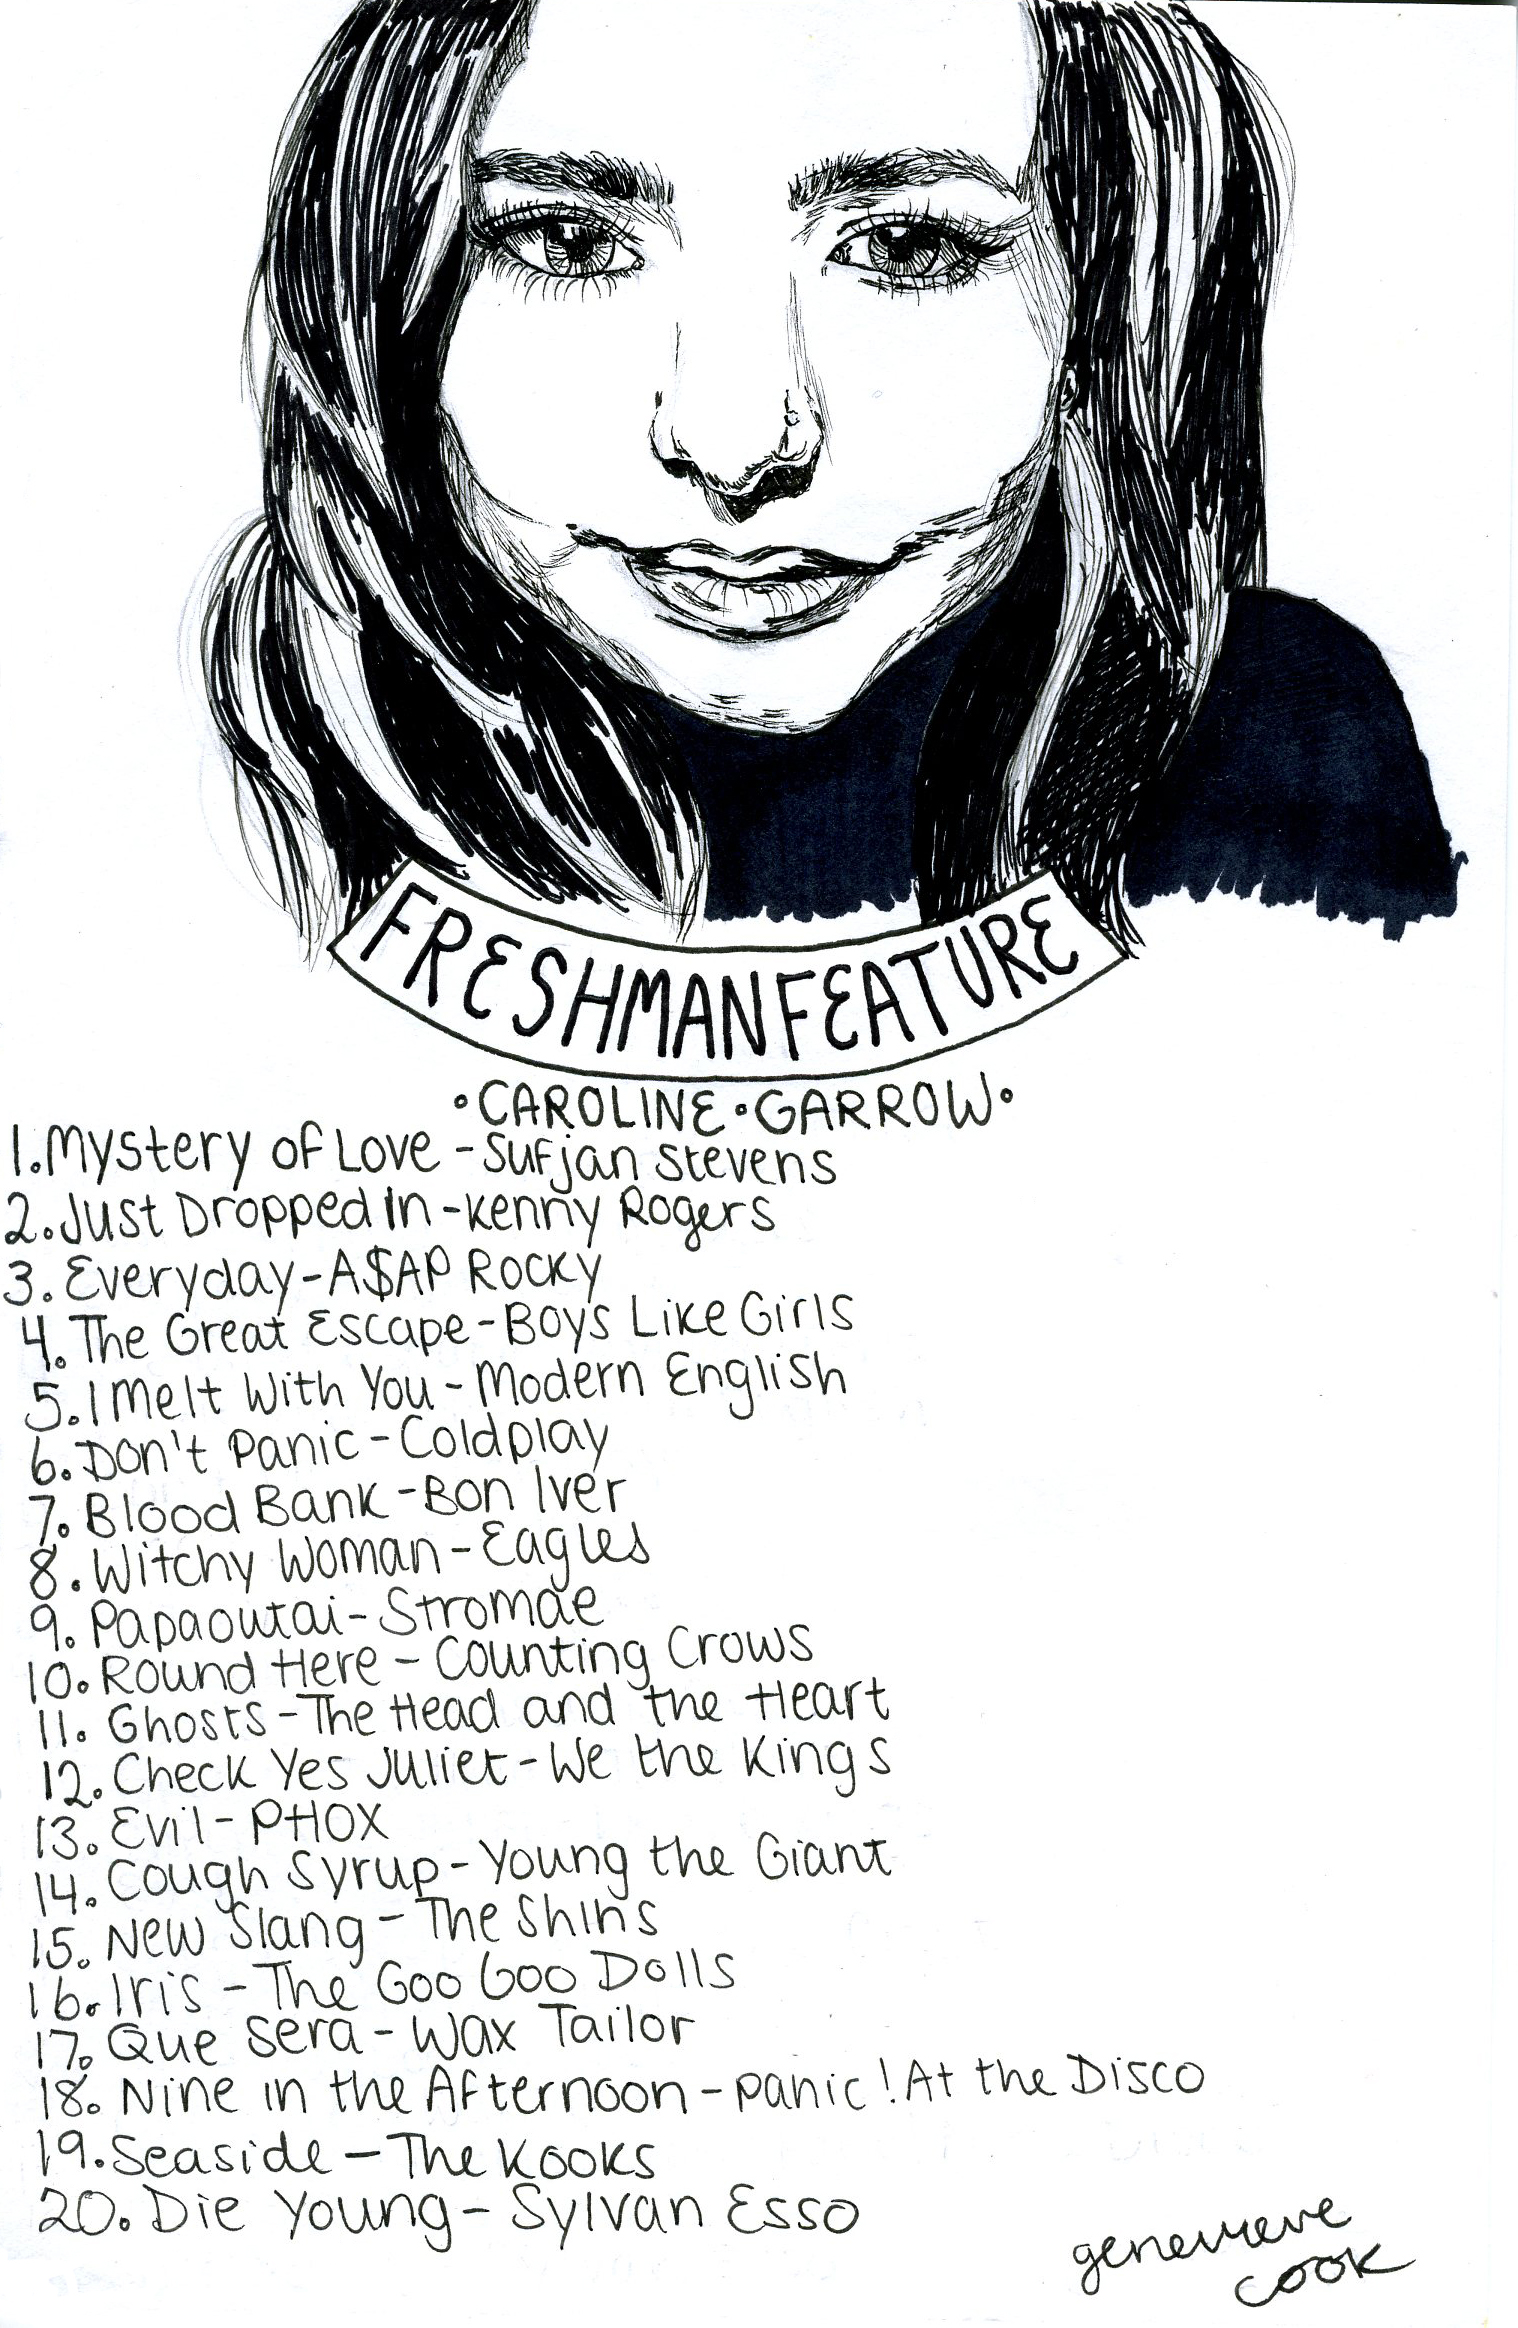 FRESHMAN FEATURE
•CAROLINE•GARROW•
1. Mystery of Love - Sufjan Stevens
2. Just Dropped In - Kenny Rogers
3. Everyday - A$AP Rocky
4. The Great Escape - Boys Like Girls
5. I Melt With You - Modern English
6. Don't Panic - Coldplay
7. Blood Bank - Bon Iver
8. Witchy Woman - Eagles
9. Papaoutai - Stromae
10. Round Here - Counting Crows
11. Ghosts - The Head and the Heart
12. Check Yes Juliet - We the Kings
13. Evil - PHOX
14. Cough Syrup - Young the Giant
15. New Slang - The Shins
16. Iris - The Goo Goo Dolls
17. Que Sera - Wax Tailor
18. Nine in the Afternoon - Panic! At the Disco
19. Seaside - The Kooks
20. Die Young - Sylvan Esso
genevieve
cook